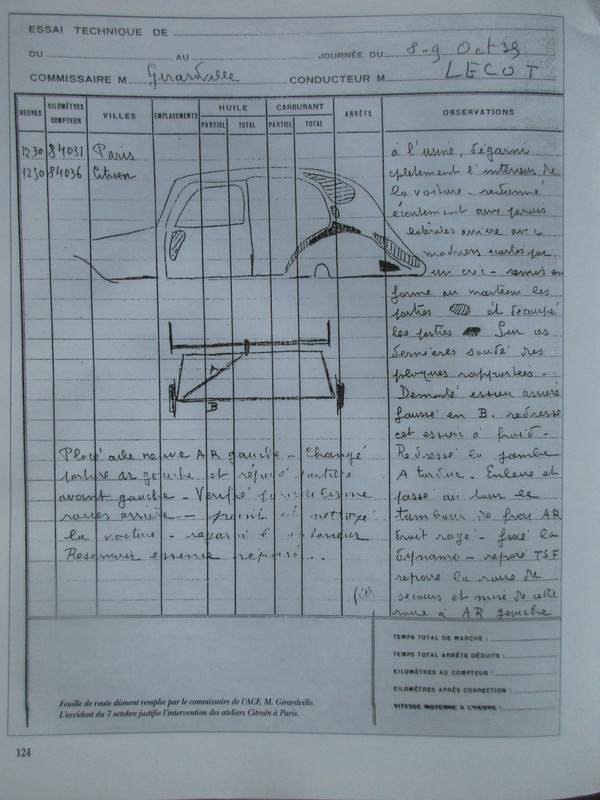 ESSAI TECHNIQUE DE
DU AU JOURNÉE DU 8-9 Oct 35
COMMISSAIRE M Girardville CONDUCTEUR M LECOT
HEURES KILOMÈTRES COMPTEUR VILLES EMPLACEMENTS HUILE PARTIEL TOTAL CARBURANT PARTIEL TOTAL ARRÊTS OBSERVATIONS
1230 84031 Paris
1250 84036 Citroen
à l'usine, dégarni
cpletement l'intérieur de
la voiture - redonné
écoulement aux parois
latérales arrière avec
madriers écartés par
un cric - remis en
forme au marteau les
parties et découpé
les parties Sur ces
dernières soudé des
plaques rapportées -
Démonté essieu arrière
faussé en B. redressé
cet essieu à froid -
Redressé la jambe
A tordue. Enlevé et
passé au tour le
tambour de frein AR
droit rayé - fixé la
dynamo - reposé TSF
reposé la roue de
secours et mise de cette
roue à AR gauche
A
B
Placé aile neuve AR gauche - Changé
portière ar gauche et réparé portière
avant gauche - Vérifié
roues arrière - peint et nettoyé
la voiture - regarni l'intérieur
Reservoir essence réparé ..
TEMPS TOTAL DE MARCHE :
TEMPS TOTAL ARRÊTS DÉDUITS :
KILOMÈTRES AU COMPTEUR :
KILOMÈTRES APRÈS CORRECTION :
VITESSE MOYENNE A L'HEURE :
Feuille de route dûment remplie par le commissaire de l'ACF, M. Girardville.
L'accident du 7 octobre justifie l'intervention des ateliers Citroën à Paris.
124